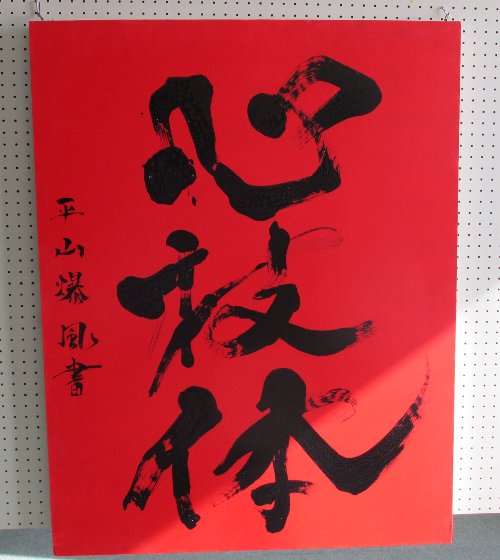 心技体
平山爆風書